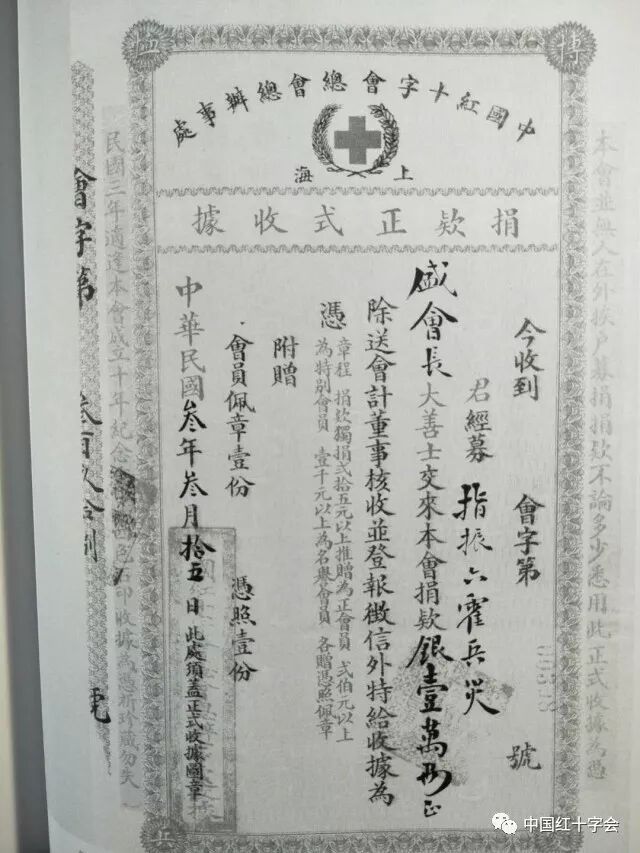 博
中國紅十字會總會總辦事處
上海
捐欵正式收據
本會並無人在外挨戶募捐捐欵不論多少悉用此正式收據為憑
今收到 會字第 號
君經募 指振六霍兵災
盛會長大善士交來本會捐欵銀壹萬兩正
除送會計董事核收並登報徵信外特給收據為
憑
章程 捐欵獨捐弍拾五元以上推贈為正會員 弍伯元以上
為特別會員 壹千元以上為名譽會員 各贈憑照佩章
附贈
會員佩章壹份 憑照壹份
中華民國叁年叁月拾五日此處須蓋正式收據圖章
民國三年適達本會成立十年紀念 石印收據為憑祈珍藏勿失
會字第 號
中国红十字会